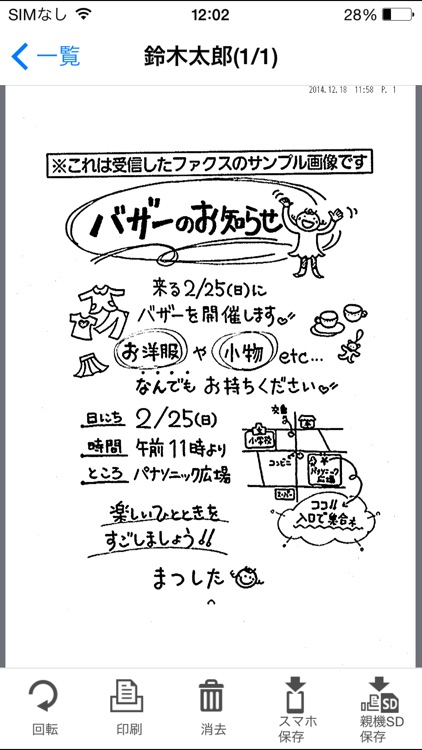 SIMなし 12:02 28%
一覧 鈴木太郎(1/1)
2014.12.18 11:58 P. 1
※これは受信したファクスのサンプル画像です
バザーのお知らせ
来る2/25(日)に
バザーを開催します
お洋服や小物etc...
なんでもお持ちください
日にち 2/25(日)
時間 午前11時より
ところ パナソニック広場
交番
小学校
コンビニ
パナソニック
広場
スーパー
ココ!!
入口で集合
楽しいひとときを
すごしましょう!!
まつした
回転 印刷 消去 スマホ保存 親機SD保存
SD